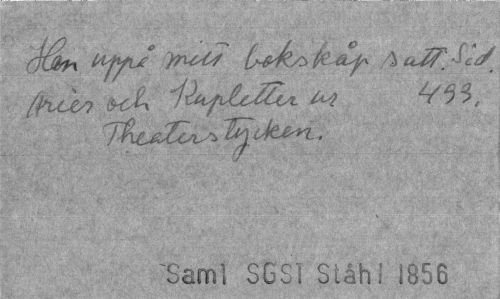 Han uppå mitt bokskåp satt. Sid.
Arier och Kupletter ur 493.
Theaterstycken.
Saml SGS1 Ståhl 1856